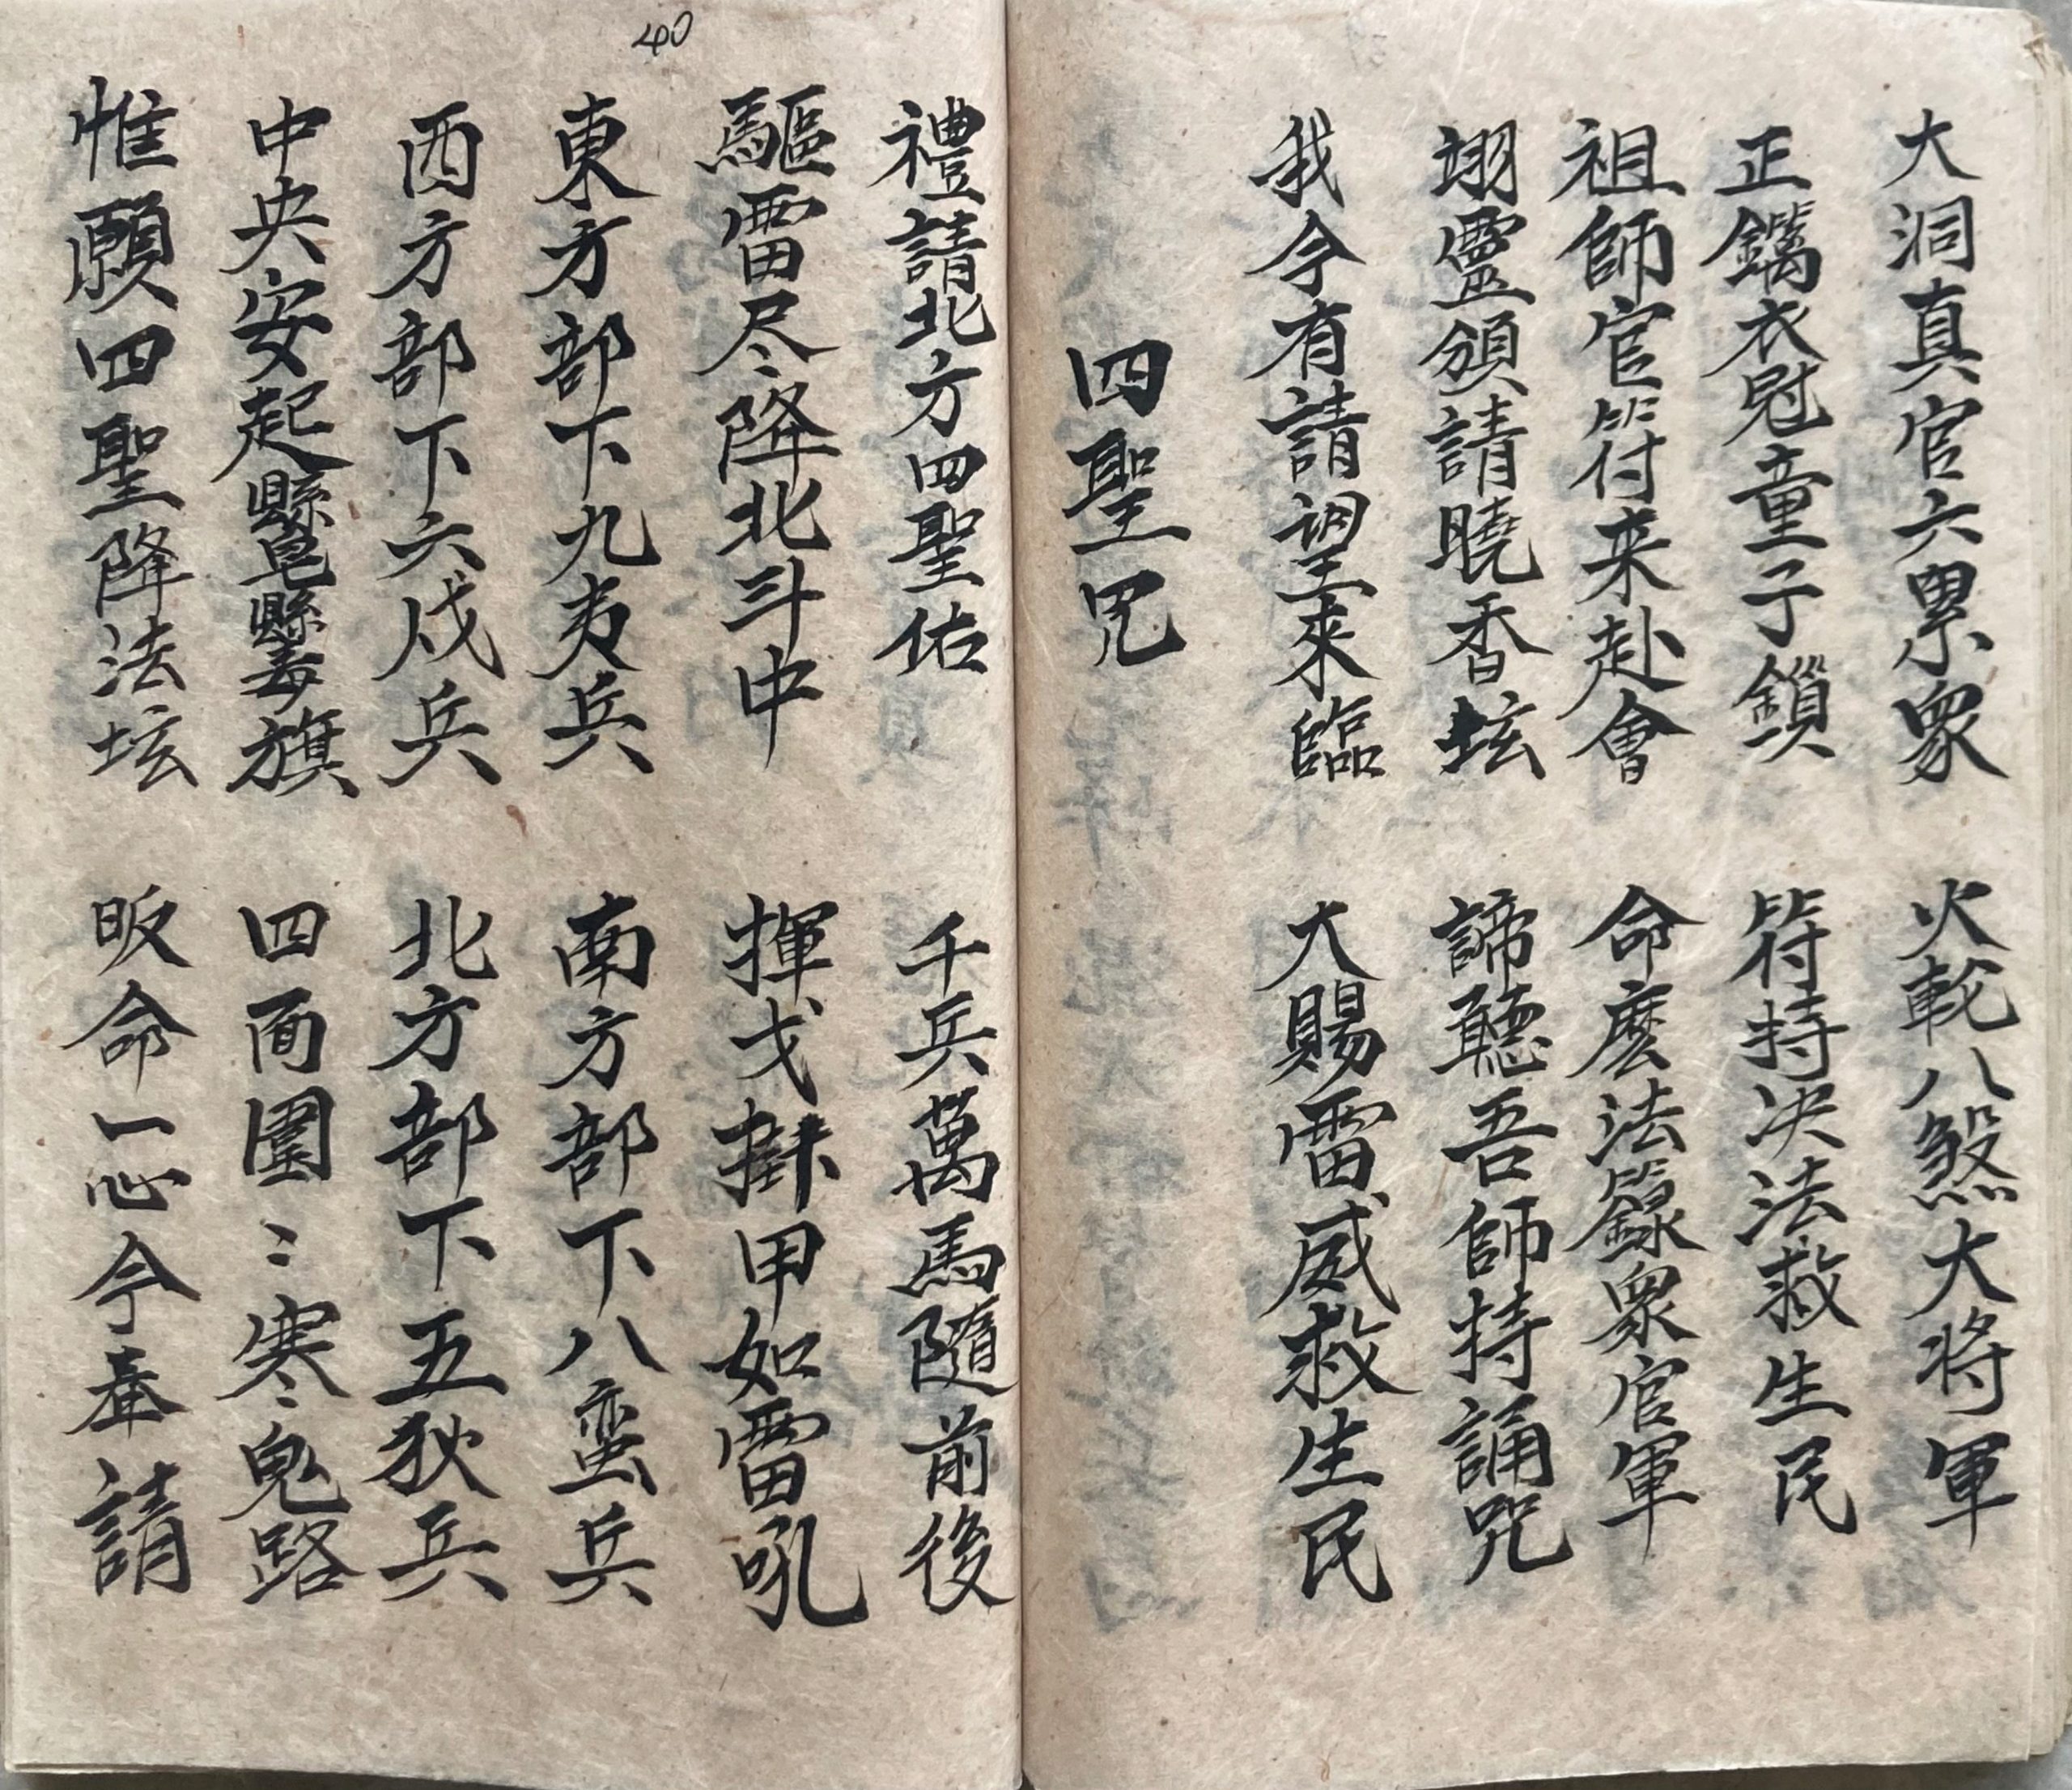 大洞真官六眾 火乾八煞大将軍
正鐫衣尅童子鎖 符持决法救生民
祖師官符来赴會 命麼法籙眾官軍
翊靈頒請曉香坛 諦聽吾師持誦咒
我今有請望來臨 大賜雷威救生民
四聖咒
40
禮請北方四聖佑 千兵萬馬隨前後
驅雷尽降北斗中 揮戈掛甲如雷吼
東方部下九夷兵 南方部下八蛮兵
西方部下六戍兵 北方部下五狄兵
中央安起縣皂縣毒旗 四面圍〻寒鬼路
惟願四聖降法坛 皈命一心今奉請